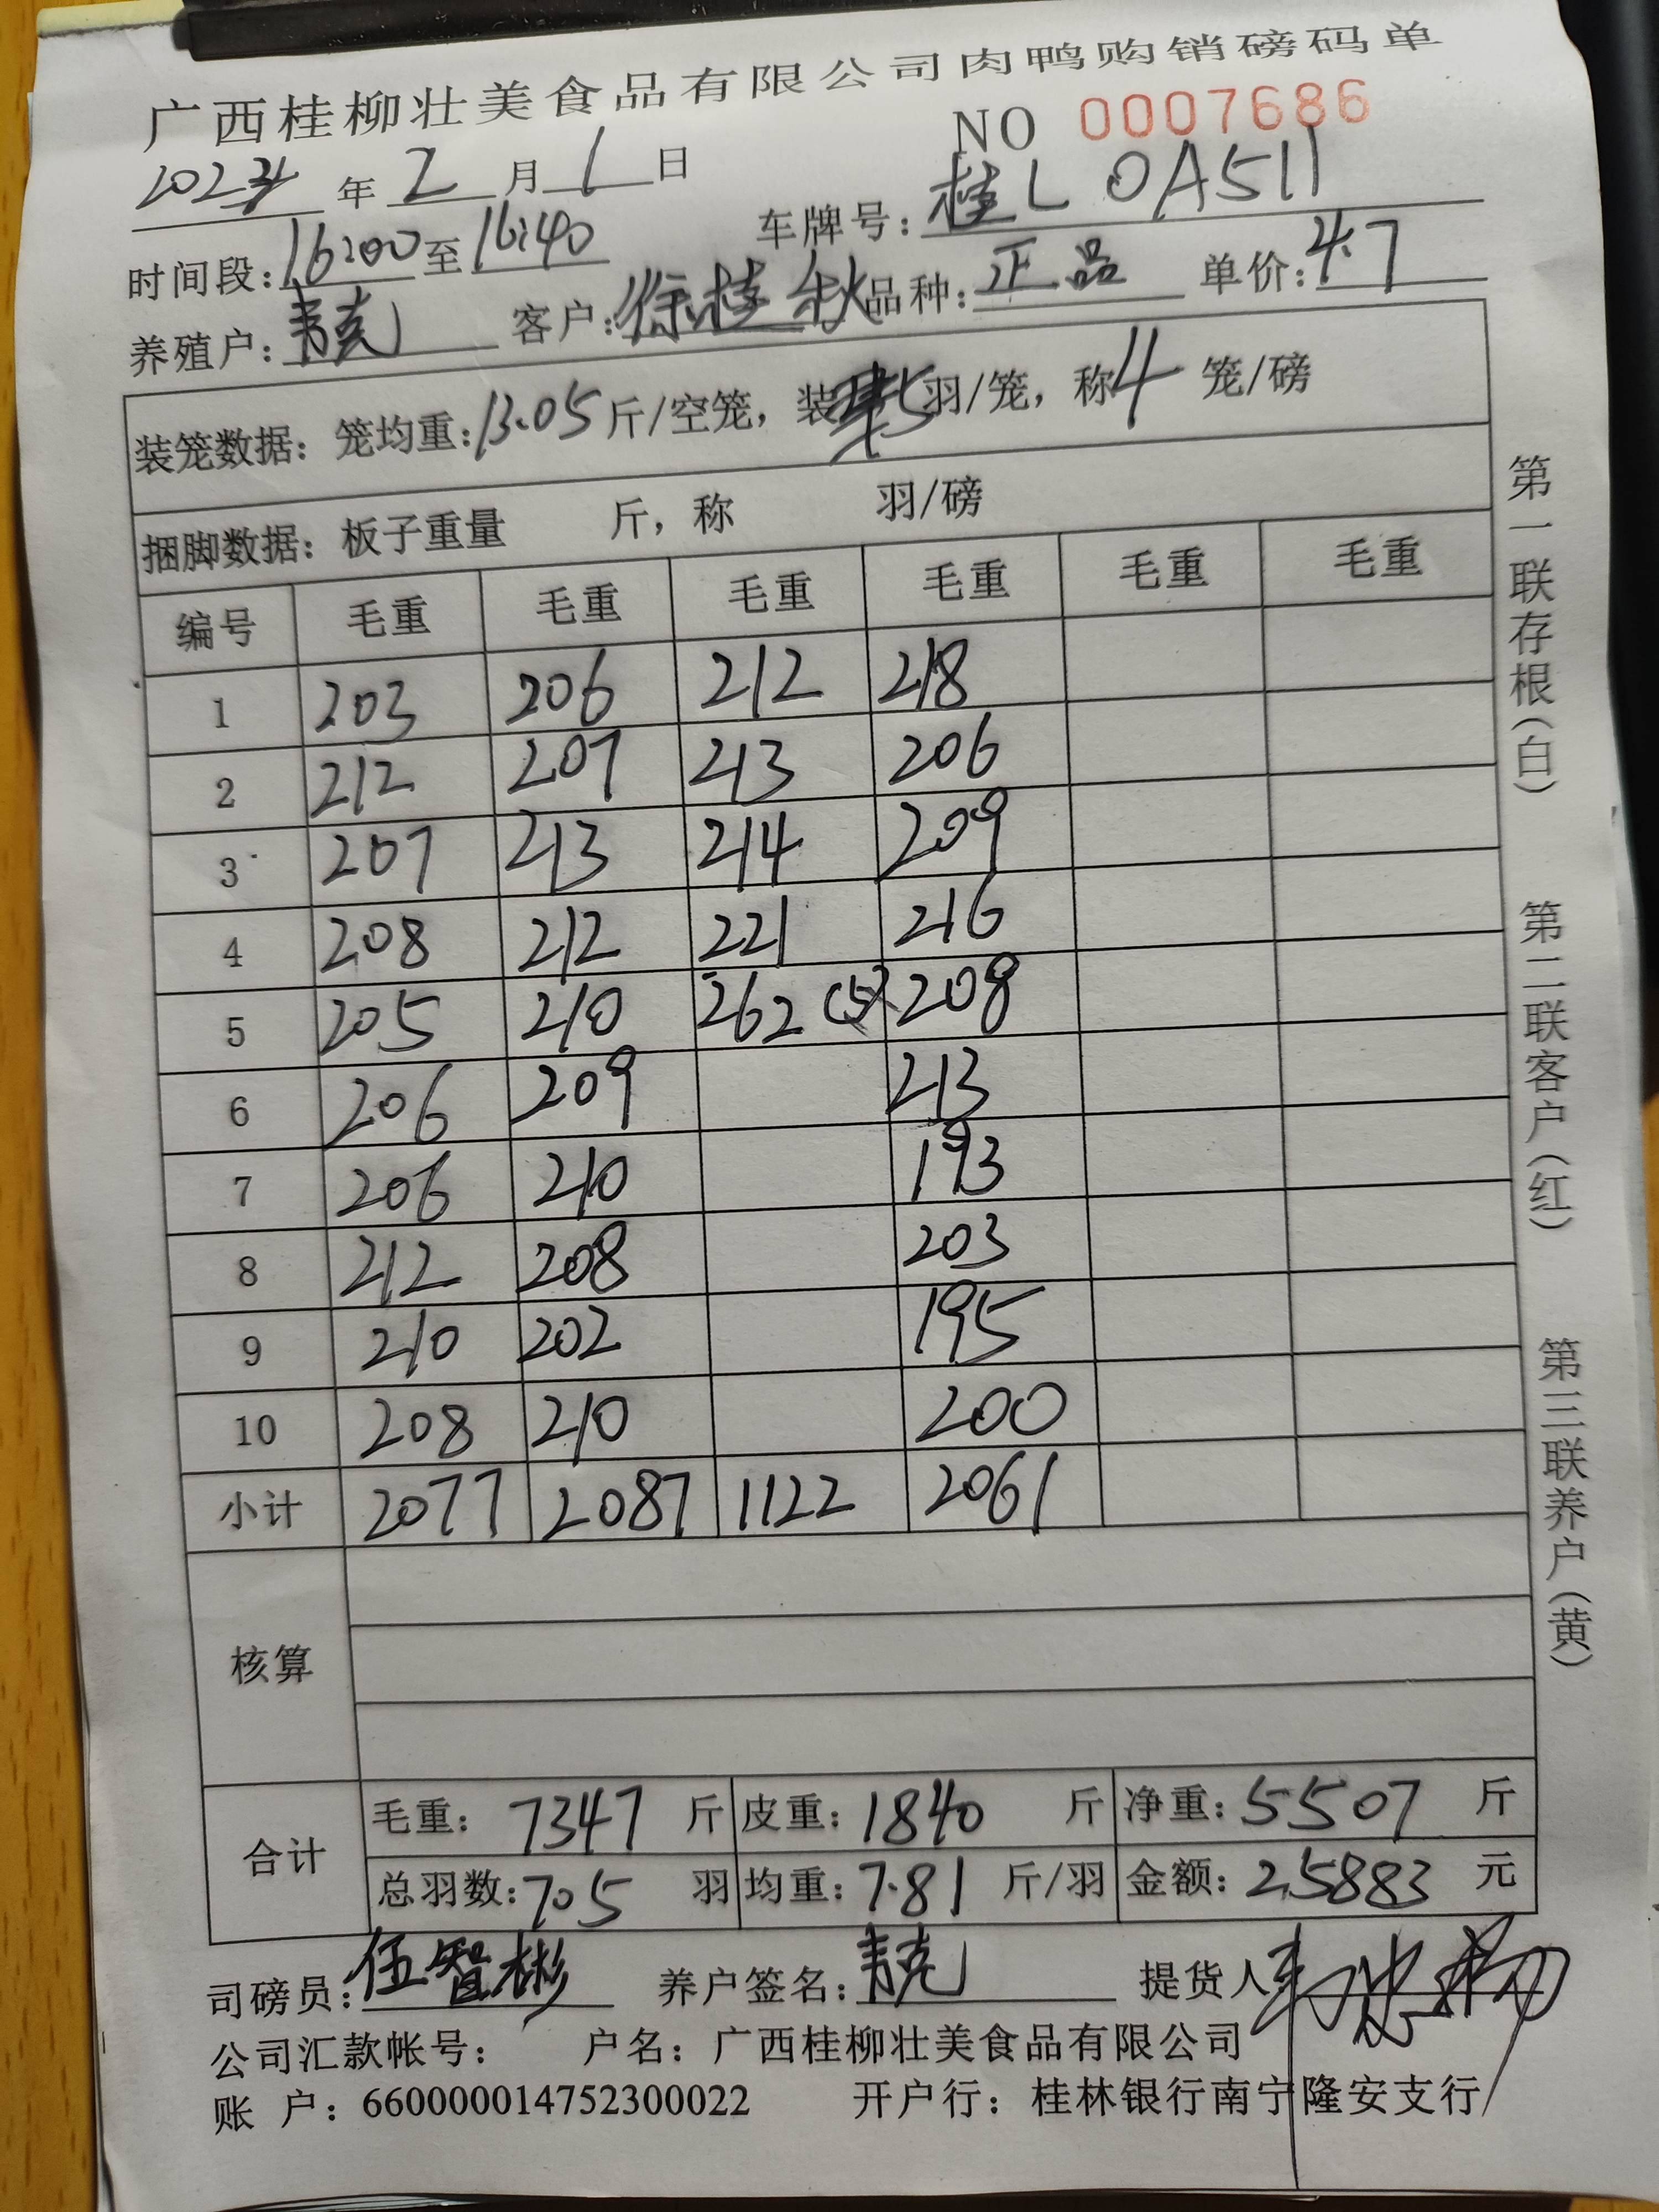 广西桂柳壮美食品有限公司肉鸭购销磅码单
NO 0007686
年 2 月 1 日
时间段: 16:00 至 16:40 车牌号: 桂L 0A511
养殖户: 韦克 客户: 徐桂秋 品种: 正品 单价: 4.7
装笼数据: 笼均重: 13.05 斤/空笼, 装 5 羽/笼, 称 4 笼/磅
捆脚数据: 板子重量 斤, 称 羽/磅
编号 毛重 毛重 毛重 毛重 毛重 毛重
1 203 206 212 218
2 212 207 213 206
3 207 213 214 209
4 208 212 221 216
5 205 210 262 (5) 208
6 206 209 213
7 206 210 193
8 212 208 203
9 210 202 195
10 208 210 200
小计 2077 2087 1122 2061
核算
合计 毛重: 7347 斤 皮重: 1840 斤 净重: 5507 斤
总羽数: 705 羽 均重: 7.81 斤/羽 金额: 25883 元
司磅员: 伍智彬 养户签名: 韦克 提货人
公司汇款帐号: 户名: 广西桂柳壮美食品有限公司
账 户: 660000014752300022 开户行: 桂林银行南宁隆安支行
第一联存根(白) 第二联客户(红) 第三联养户(黄)